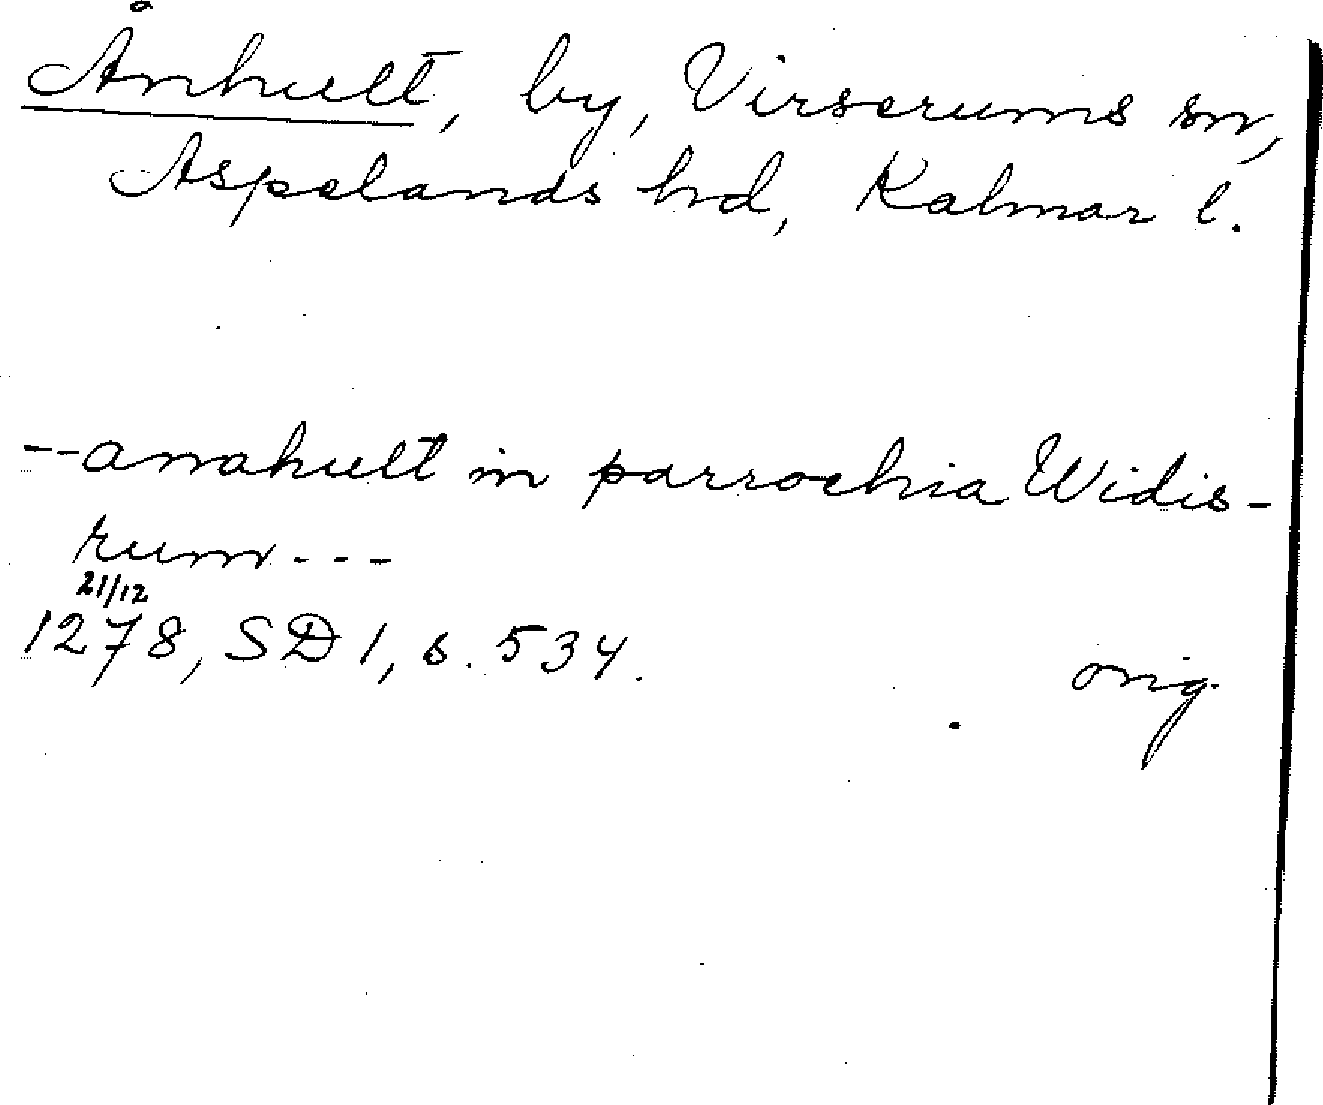 Ånhult, by, Virserums sn,
Aspelands hd, Kalmar l.
--anahult in parrochia Widis-
rum---
21/12
1278, SD 1, s. 534.
orig.